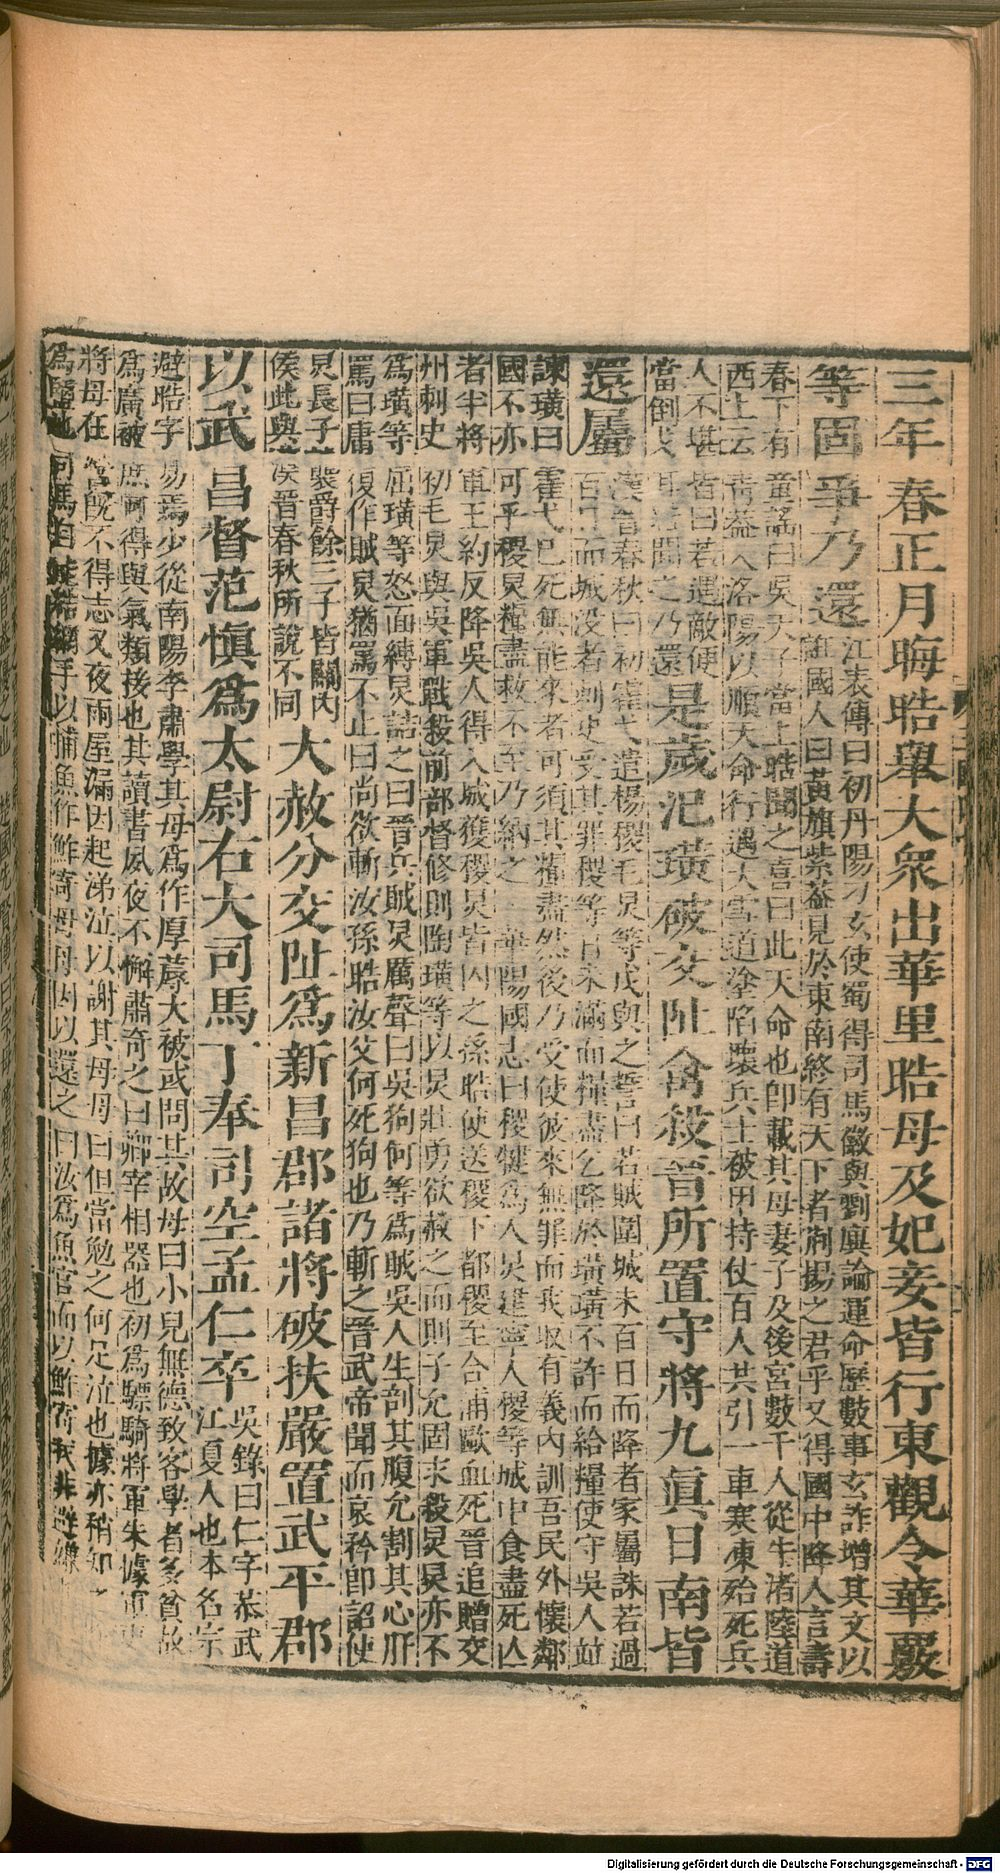 三年春正月晦晧舉大衆出華里晧母及妃妾皆行東觀令華覈
等固爭乃還江表傳曰初丹陽刁玄使蜀得司馬徽與劉廙論運命歷數事玄詐增其文以
誑國人曰黃旗紫葢見於東南終有天下者荊揚之君乎又得國中降人言壽
春下有童謠曰吳天子當上晧聞之喜曰此天命也卽載其母妻子及後宮數千人從牛渚陸道
西上云青葢入洛陽以順天命行遇大雪道塗陷壞兵士被甲持仗百人共引一車寒凍殆死兵
人不堪皆曰若遇敵便
當倒戈耳晧聞之乃還是歲汜璜破交阯禽殺晉所置守將九眞日南皆
還屬漢晉春秋曰初霍弋遣楊稷毛炅等戍與之誓曰若賊圍城未百日而降者家屬誅若過
百日而城没者刺史受其罪稷等日未滿而糧盡乞降於璜璜不許而給糧使守吳人竝
諫璜曰霍弋已死無能來者可須其糧盡然後乃受使彼來無罪而我取有義內訓吾民外懷鄰
國不亦可乎稷炅糧盡救不至乃納之 華陽國志曰稷犍爲人炅建寧人稷等城中食盡死亡
者半將軍王約反降吳人得入城獲稷炅皆囚之孫晧使送稷下都稷至合浦歐血死晉追贈交
州刺史初毛炅與吳軍戰殺前部督修則陶璜等以炅壯勇欲赦之而則子允固求殺炅炅亦不
爲璜等屈璜等怒面縛炅詰之曰晉兵賊炅厲聲曰吳狗何等爲賊吳人生剖其腹允割其心肝
罵曰庸復作賊炅猶罵不止曰尚欲斬汝孫晧汝父何死狗也乃斬之晉武帝聞而哀矜卽詔使
炅長子襲爵餘三子皆關內
侯此與漢晉春秋所說不同大赦分交阯爲新昌郡諸將破扶嚴置武平郡
以武昌督范愼爲太尉右大司馬丁奉司空孟仁卒吳錄曰仁字恭武
江夏人也本名宗
避晧字易焉少從南陽李肅學其母爲作厚蓐大被或問其故母曰小兒無德致客學者多貧故
爲廣被庶可得與氣類接也其讀書夙夜不懈肅奇之曰卿宰相器也初爲驃騎將軍朱據軍吏
將母在營旣不得志又夜雨屋漏因起涕泣以謝其母母曰但當勉之何足泣也據亦稍知之
爲鹽池司馬自能結網手以捕魚作鮓寄母母因以還之曰汝爲魚官而以鮓寄我非避嫌
Digitalisierung gefördert durch die Deutsche Forschungsgemeinschaft - DFG